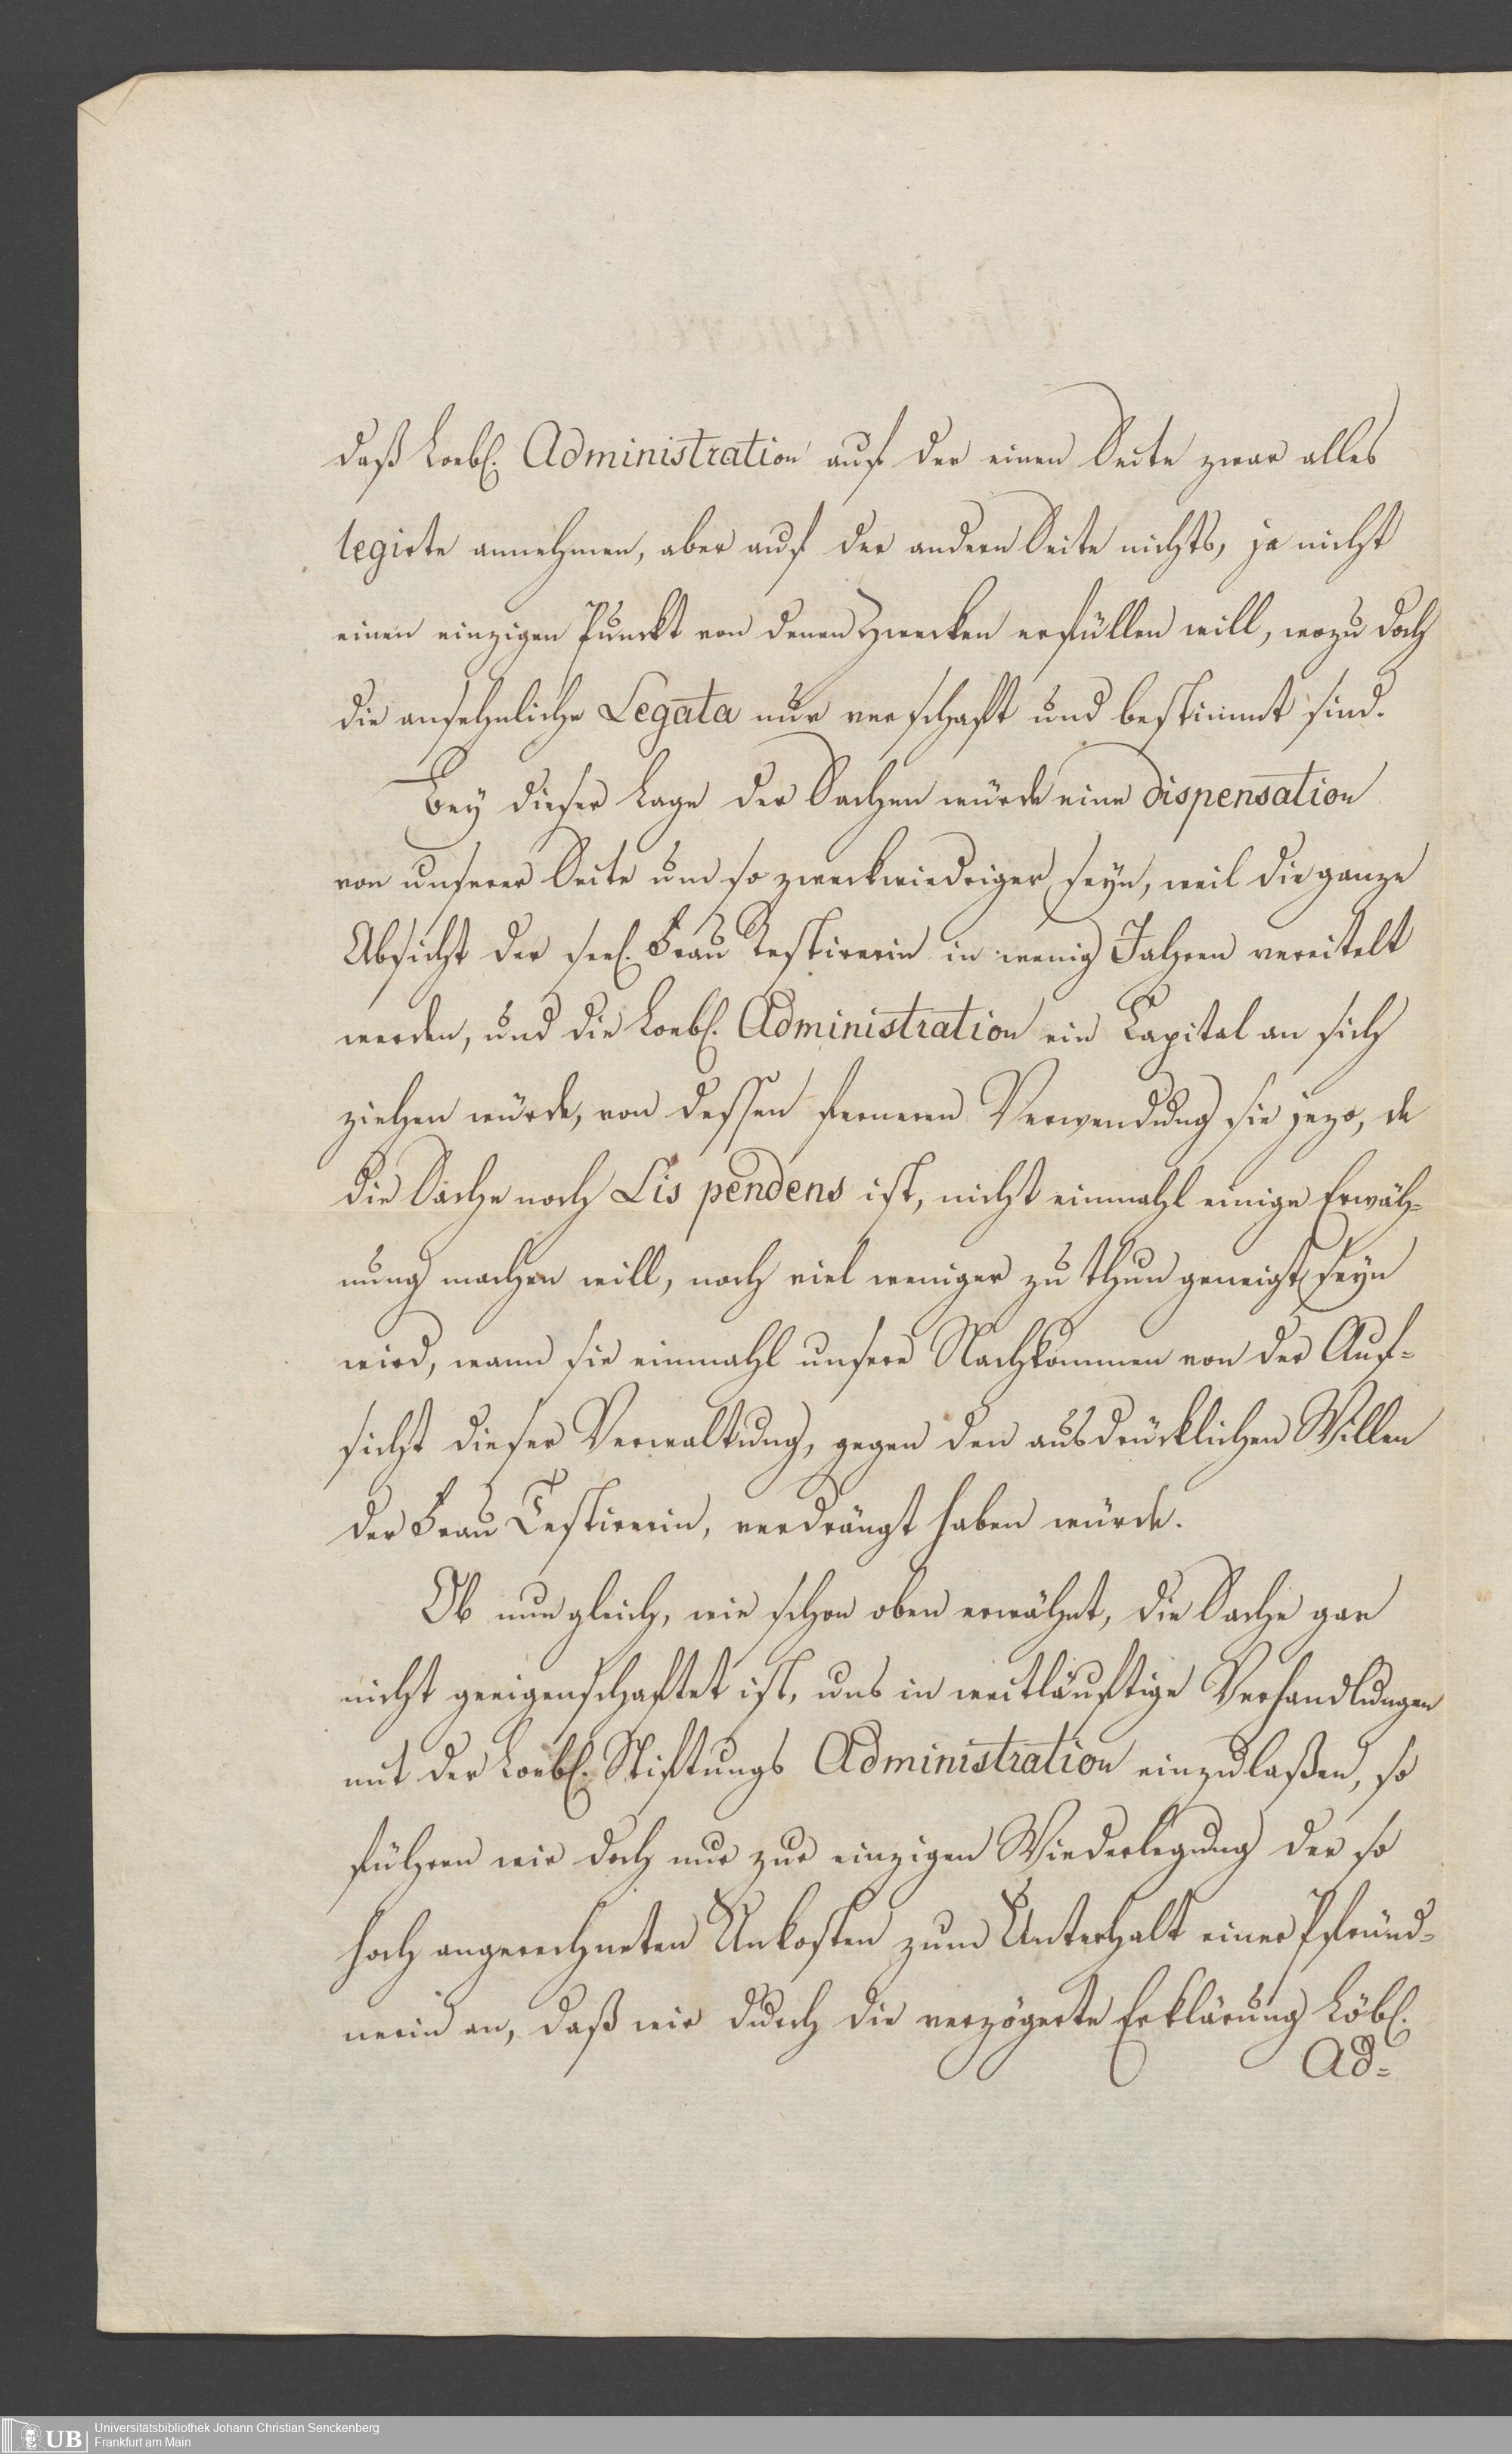 daß Loebl. Administration auf der einen Seite zwar alles
legirte annehmen, aber auf der andern Seite nichts, ja nicht
einen einzigen Punckt von denen Zwecken erfüllen will, wozu doch
die ansehnliche Legata nur verschaft und bestimmt sind.
Bey dieser Lage der Sachen würde eine dispensation
von unserer Seite um so zweckwiedriger seyn, weil die ganze
Absicht der seel. Frau Testirerin in wenig Jahren vereitelt
werden, und die Loebl. Administration ein Capital an sich
ziehen würde, von dessen ferneren Verwendung sie jezo, da
die Sache noch Lis pendens ist, nicht einmahl einige Erwäh-
nung machen will, noch viel weniger zu thun geneigt seyn
wird, wann sie einmahl unsere Nachkommen von der Auf-
sicht dieser Verwaltung, gegen den ausdrücklichen Willen
der Frau Testirerin, verdrängt haben würde.
Ob nun gleich, wie schon oben erwähnt, die Sache gar
nicht geeigenschaftet ist, uns in weitläuftige Verhandlungen
mit der Loebl. Stiftungs Administration einzulaßen, so
führen wir doch nur zur einzigen Wiederlegung der so
hoch angerechneten Unkosten zum Unterhalt einer Pfründ-
nerin an, daß wir durch die verzögerte Erklärung Löbl.
Ad-
UB
Universitätsbibliothek Johann Christian Senckenberg
Frankfurt am Main